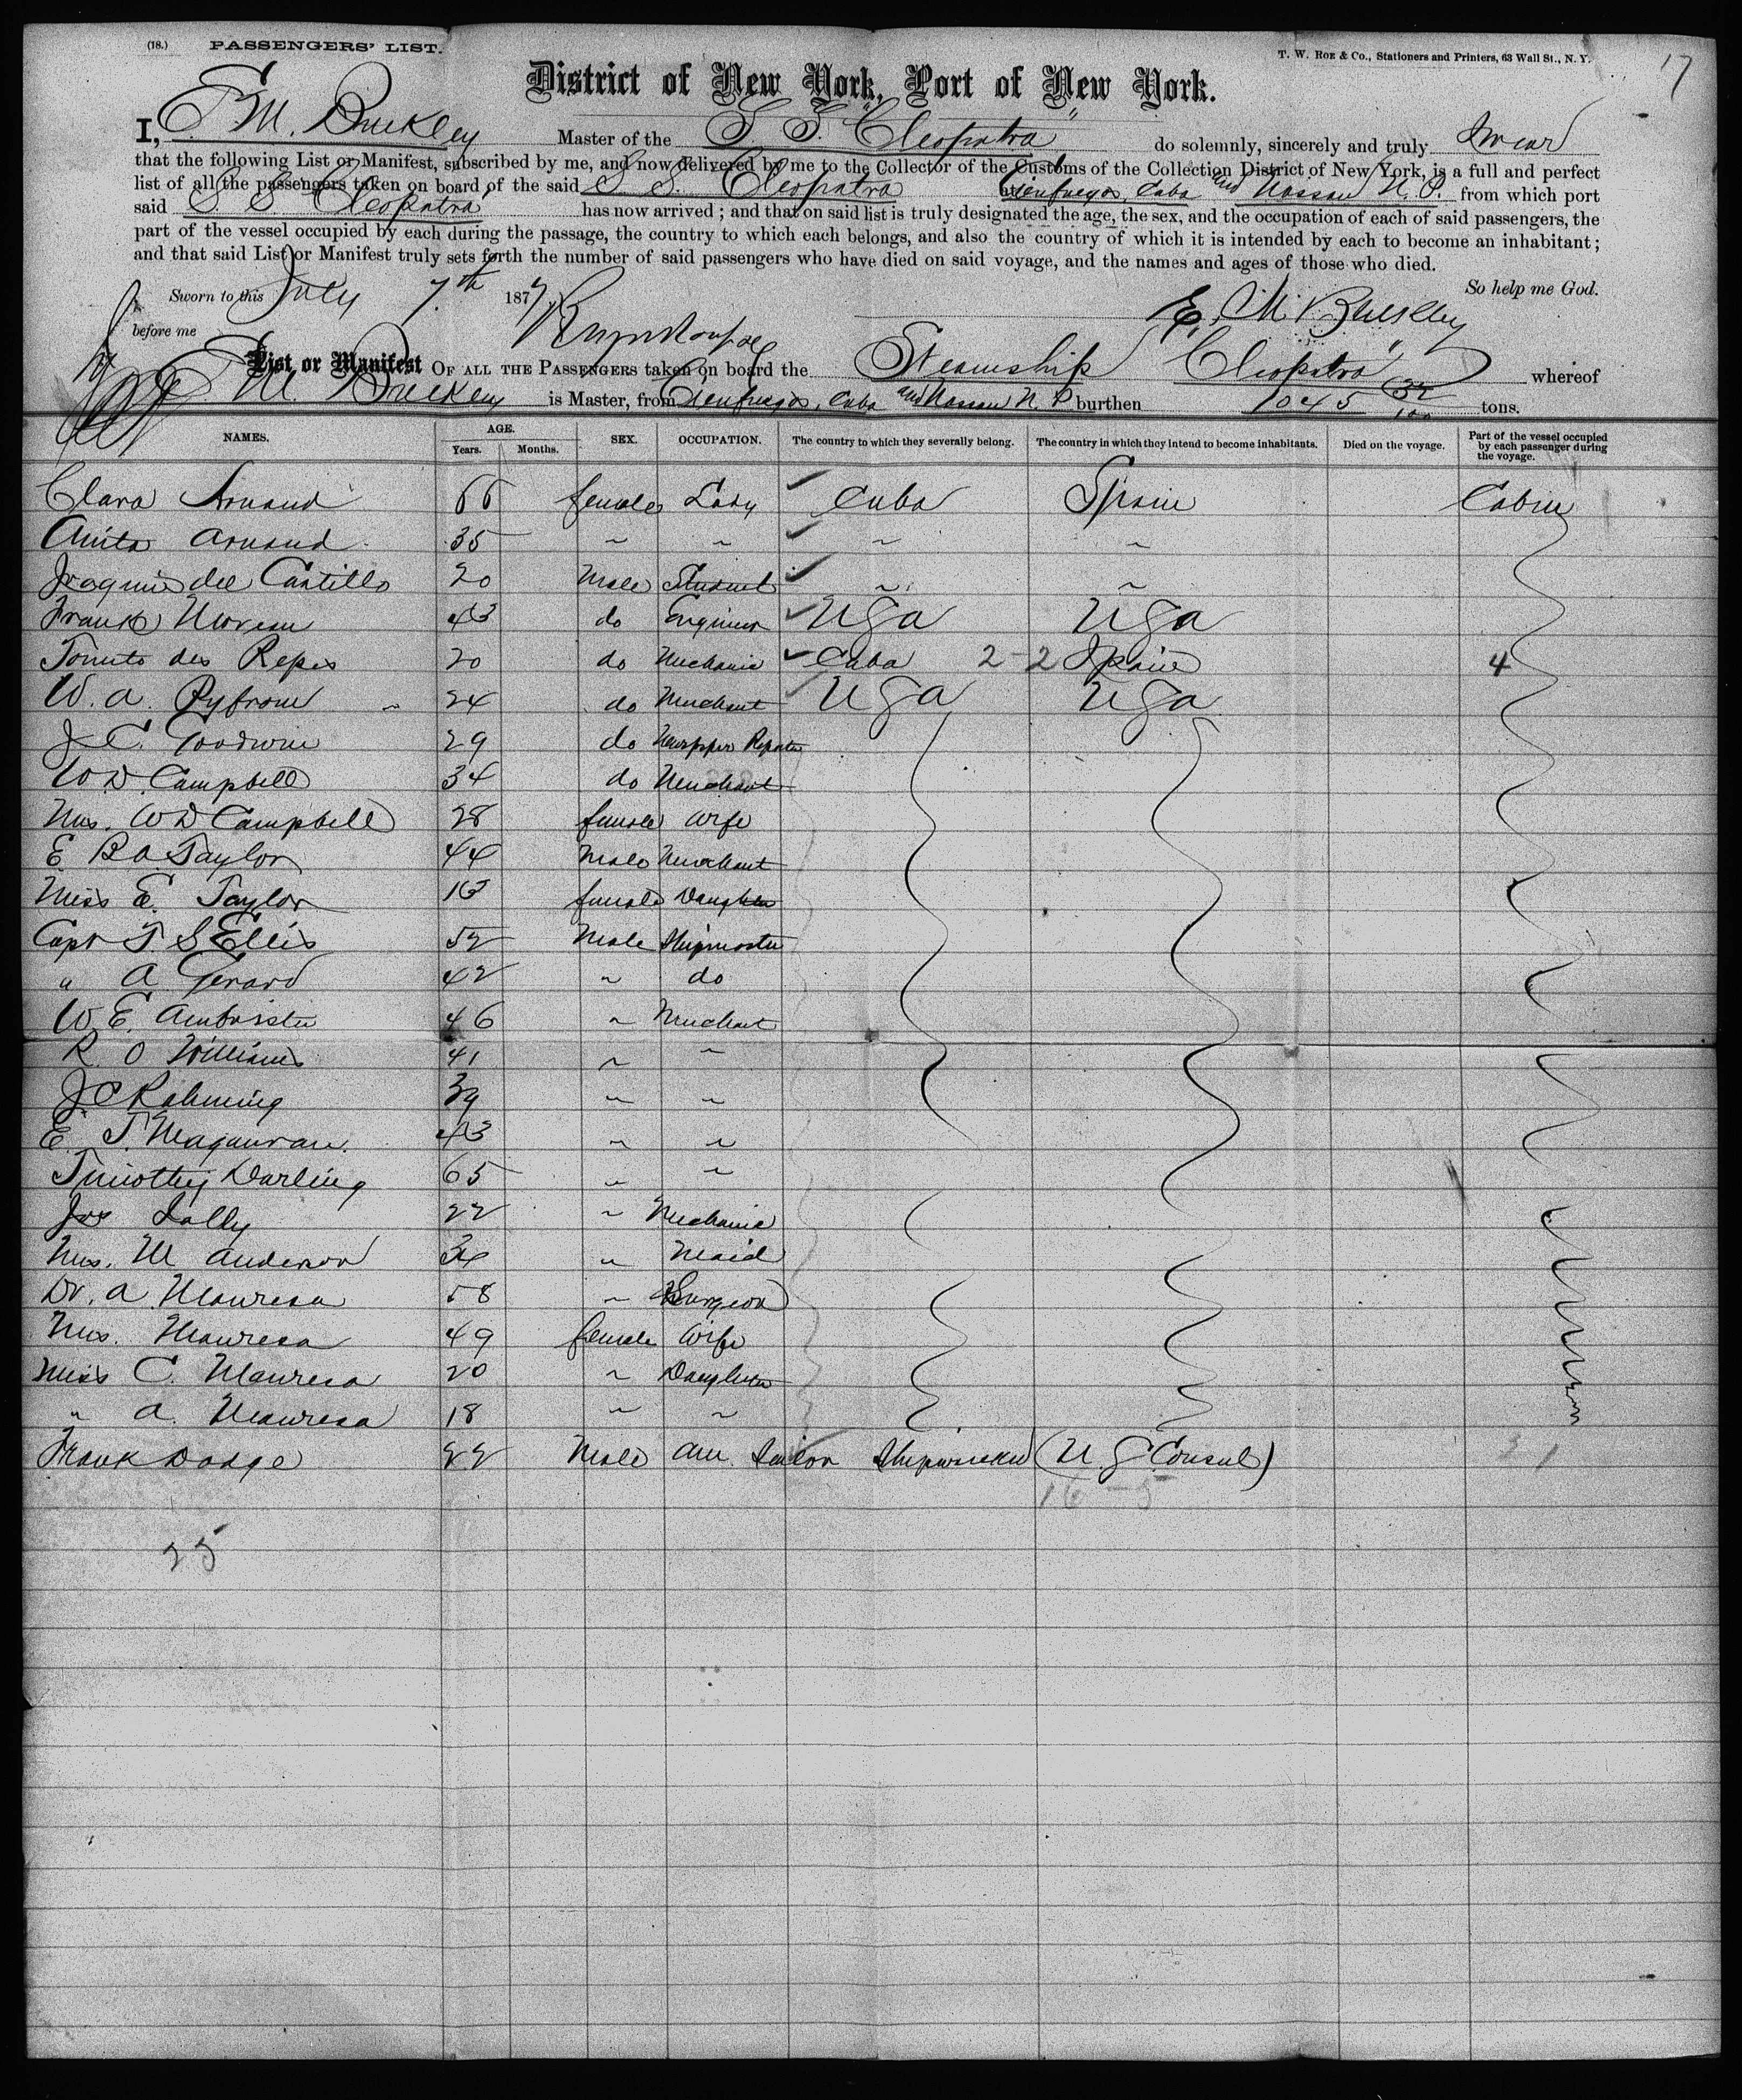 (18.) PASSENGERS' LIST.
T. W. Roe & Co., Stationers and Printers, 63 Wall St., N. Y.
17
District of New York, Port of New York.
I, E. M. Buckley Master of the S. S. "Cleopatra" do solemnly, sincerely and truly Swear
that the following List or Manifest, subscribed by me, and now delivered by me to the Collector of the Customs of the Collection District of New York, is a full and perfect
list of all the passengers taken on board of the said S. S. Cleopatra Cienfuegos, Cuba and Nassau N. P. from which port
said S. S. Cleopatra has now arrived; and that on said list is truly designated the age, the sex, and the occupation of each of said passengers, the
part of the vessel occupied by each during the passage, the country to which each belongs, and also the country of which it is intended by each to become an inhabitant;
and that said List or Manifest truly sets forth the number of said passengers who have died on said voyage, and the names and ages of those who died.
So help me God.
Sworn to this July 7th 1877
E. M. Buckley
before me
List or Manifest OF ALL THE PASSENGERS taken on board the Steamship "Cleopatra" whereof
E M. Buckley is Master, from Cienfuegos, Cuba and Nassau N. P. burthen 1045 32/100 tons.
NAMES. AGE. Years. Months. SEX. OCCUPATION. The country to which they severally belong. The country in which they intend to become inhabitants. Died on the voyage. Part of the vessel occupied by each passenger during the voyage.
Clara Arnaud 66 female Lady Cuba Spain Cabin
Anita Arnaud 35 " " " "
Joaquin del Castillo 20 Male Student " "
Frank Moreau 43 do Engineer USa USa
20 do Mechanic Cuba 2-2 Spain 4
W. A. Pyfrom 24 do Merchant USa USa
J. C. Goodwin 29 do Newspper Reporter
W D. Campbell 34 do Merchant
Mrs. W D Campbell 28 female Wife
E B A Taylor 44 Male Merchant
Miss E. Taylor 13 female Daughter
Capt T S Ellis 52 Male Shipmaster
" A. Gerard 42 " do
W. E. Armbrister 46 " Merchant
R. O Williams 41 " "
J C Rahming 39 " "
E. T. 43 " "
Timothy Darling 65 " "
Jas Lally 22 " Mechanic
Mrs. M Anderson " Maid
Dr. A. Manresa 58 " Surgeon
Mrs. Manresa 49 female Wife
Miss C. Manresa 20 " Daughter
" A. Manresa 18 " "
Frank Dodge 22 Male Am. Sailor Shipwrecked (U. S. Consul) 21
16-5
25